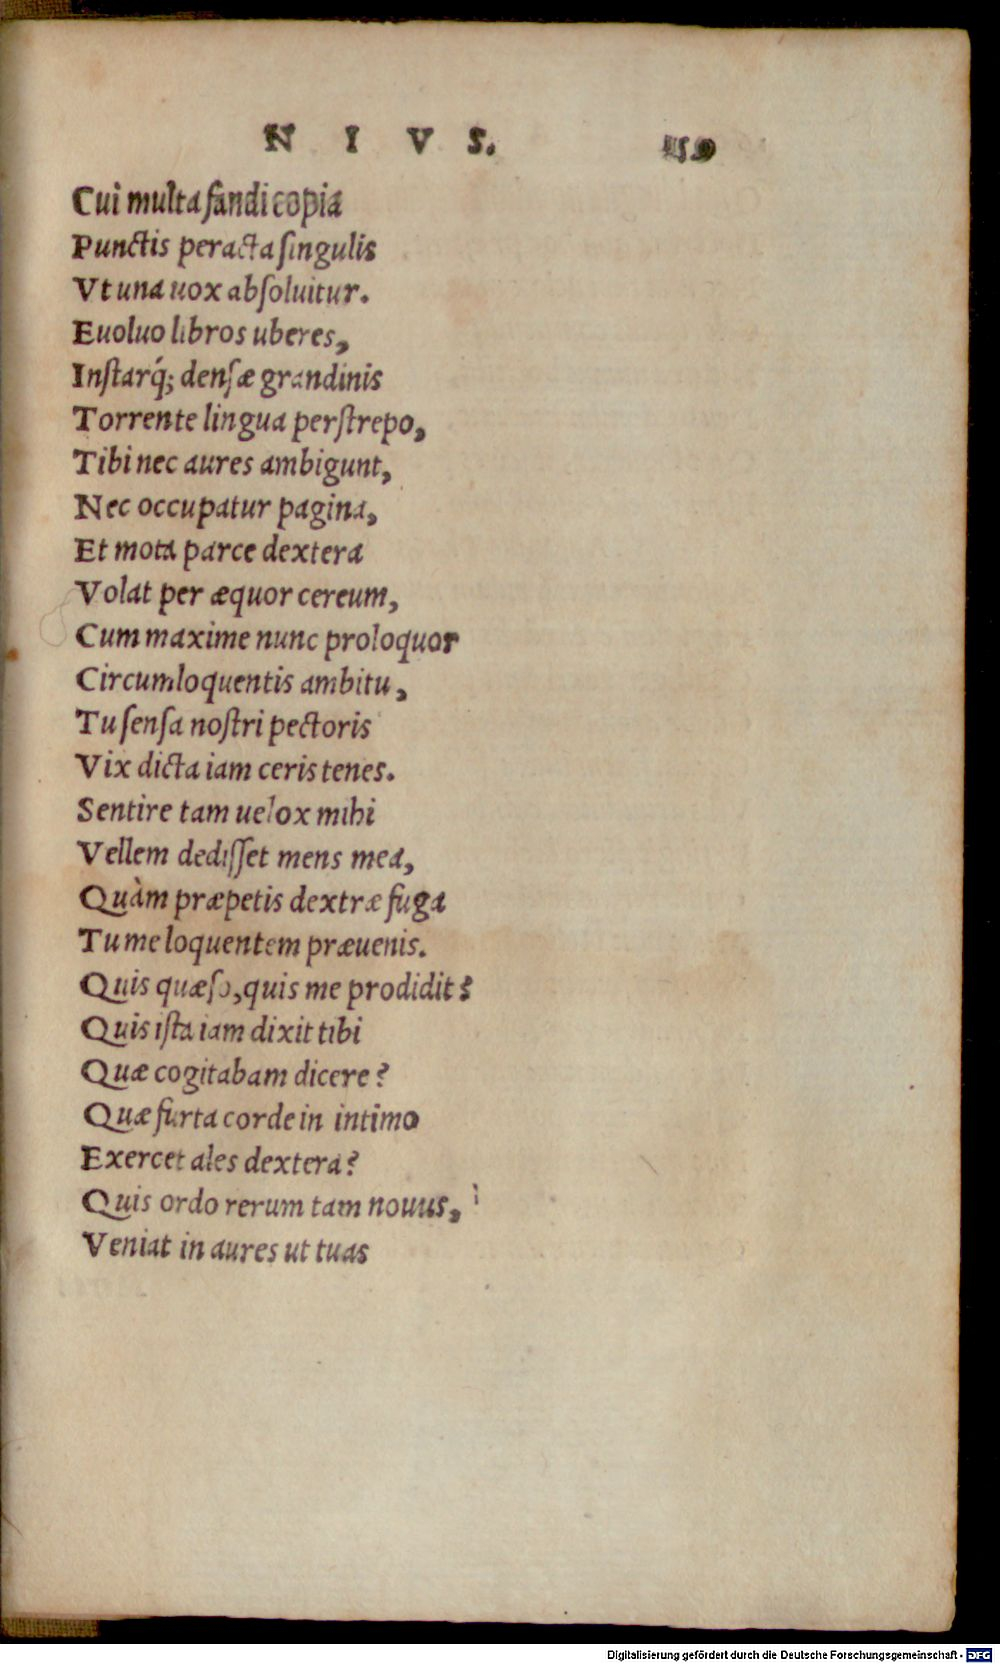 N I V S.
Cui multa fandi copia
Punctis peracta ſingulis
Vt una uox abſoluitur.
Euoluo libros uberes,
Inſtarq́; denſæ grandinis
Torrente lingua perſtrepo,
Tibi nec aures ambigunt,
Nec occupatur pagina,
Et mota parce dextera
Volat per æquor cereum,
Cum maxime nunc proloquor
Circumloquentis ambitu,
Tu ſenſa noſtri pectoris
Vix dicta iam ceris tenes.
Sentire tam uelox mihi
Vellem dediſſet mens mea,
Quàm præpetis dextræ fuga
Tu me loquentem præuenis.
Quis quæſo, quis me prodidit?
Quis iſta iam dixit tibi
Quæ cogitabam dicere?
Quæ furta corde in intimo
Exercet ales dextera?
Quis ordo rerum tam nouus,
Veniat in aures ut tuas
Digitalisierung gefördert durch die Deutsche Forschungsgemeinschaft - DFG